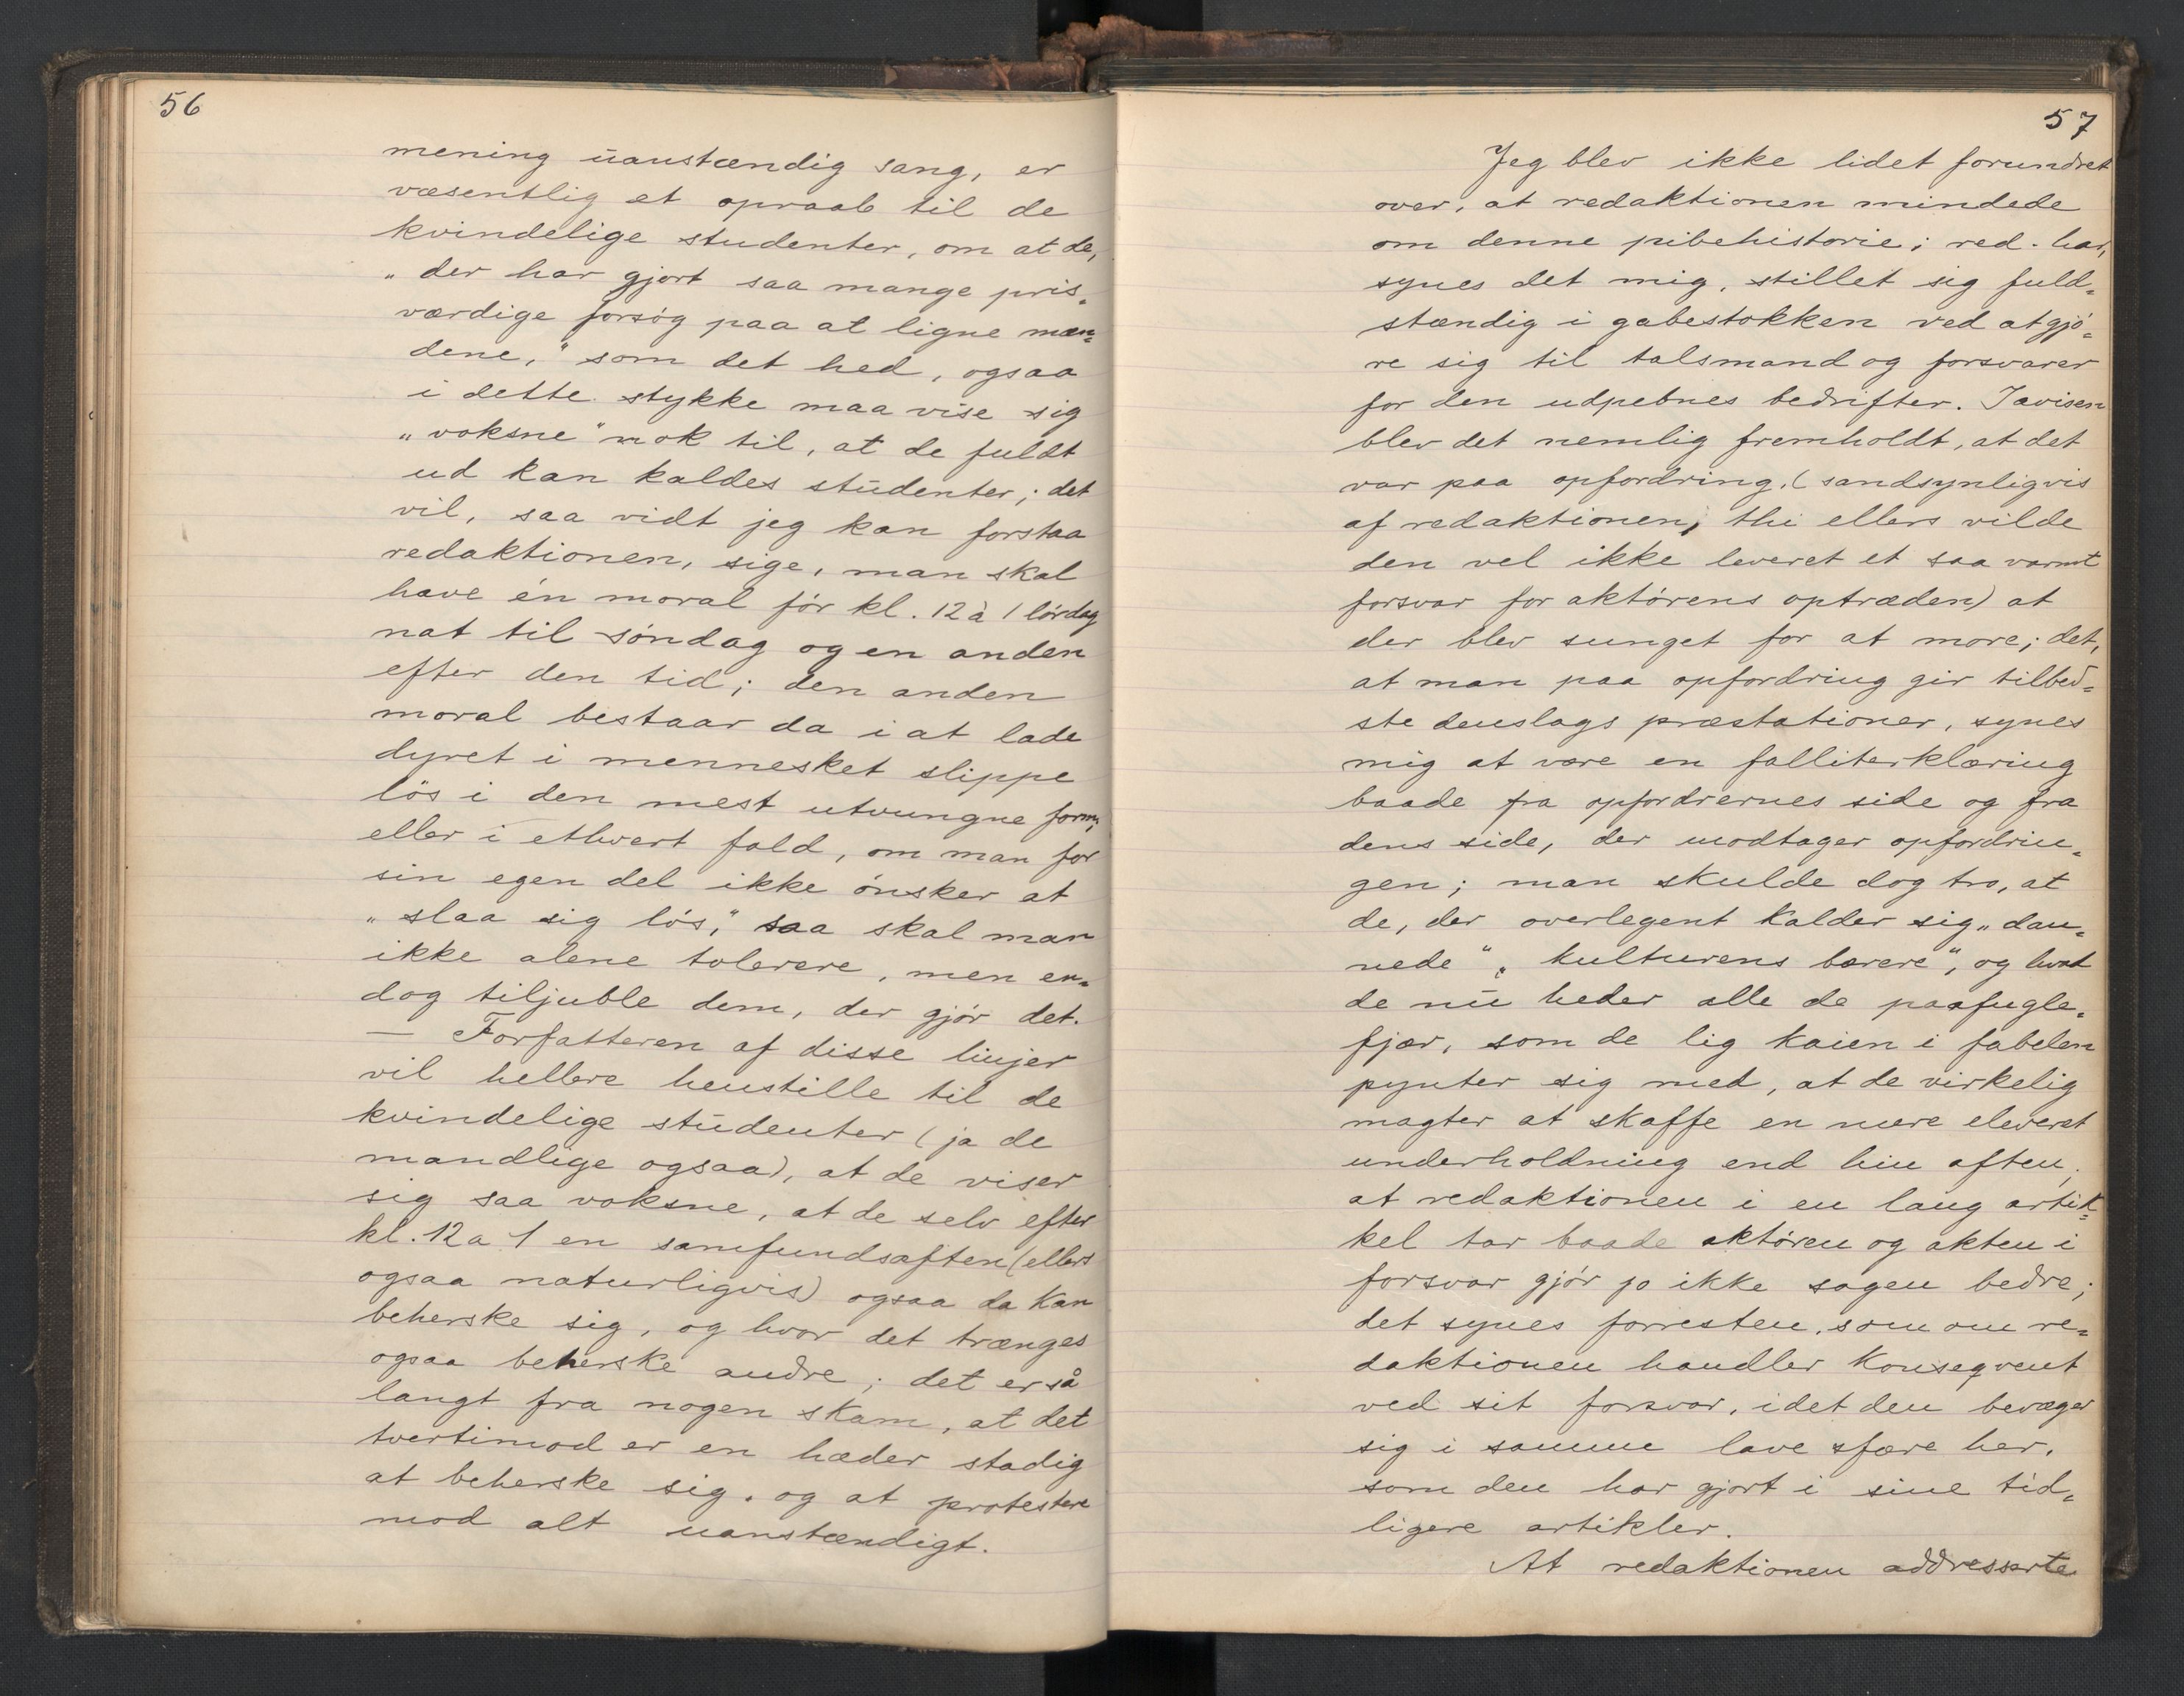 56
mening uanstændig sang, er
væsentlig et opraab til de
kvindelige studenter, om at de,
„der har gjort saa mange pris-
værdige forsøg paa at ligne mæn-
dene,“ som det hed, ogsaa
i dette stykke maa vise sig
„voksne“ nok til, at de fuldt
ud kan kaldes studenter; det
vil, saa vidt jeg kan forstaa
redaktionen, sige, man skal
have én moral før kl. 12 à 1 lørdag
nat til søndag og en anden
efter den tid; den anden
moral bestaar da i at lade
dyret i mennesket slippe
løs i den mest utvungne form;
eller i ethvert fald, om man for
sin egen del ikke ønsker at
„slaa sig løs,“ saa skal man
ikke alene tolerere, men en-
dog tiljuble dem, der gjør det.
— Forfatteren af disse linjer
vil hellere henstille til de
kvindelige studenter (ja de
mandlige ogsaa), at de viser
sig saa voksne, at de selv efter
kl. 12 a 1 en samfundsaften (ellers
ogsaa naturligvis) ogsaa da kan
beherske sig, og hvor det trænges
ogsaa beherske andre; det er så
langt fra nogen skam, at det
tvertimod er en hæder stadig
at beherske sig, og at protestere
mod alt uanstændigt.
57
Jeg blev ikke lidet forundret
over, at redaktionen mindede
om denne pibehistorie; red. har,
synes det mig, stillet sig fuld-
stændig i gabestokken ved at gjø-
re sig til talsmand og forsvarer
for den udpebnes bedrifter. I avisen
blev det nemlig fremholdt, at det
var paa opfordring, (sandsynligvis
af redaktionen, thi ellers vilde
den vel ikke leveret et saa varmt
forsvar for aktørens optræden) at
der blev sunget for at more; det,
at man paa opfordring gir tilbed-
ste denslags præstationer, synes
mig at være en falliterklæring
baade fra opfordrernes side og fra
dens side, der modtager opfordrin-
gen; man skulde dog tro, at
de, der overlegent kalder sig „dan-
nede“, „kulturens bærere“, og hvad
de nu heder alle de paafugle-
fjær, som de lig kaien i fabelen
pynter sig med, at de virkelig
magter at skaffe en mere eleveret
underholdning end hin aften;
at redaktionen i en lang artik-
kel tar baade aktøren og akten i
forsvar gjør jo ikke sagen bedre;
det synes forresten, som om re-
daktionen handler konseqvent
ved sit forsvar, idet den bevæger
sig i samme lave sfære her,
som den har gjort i sine tid-
ligere artikler.
At redaktionen addresserte